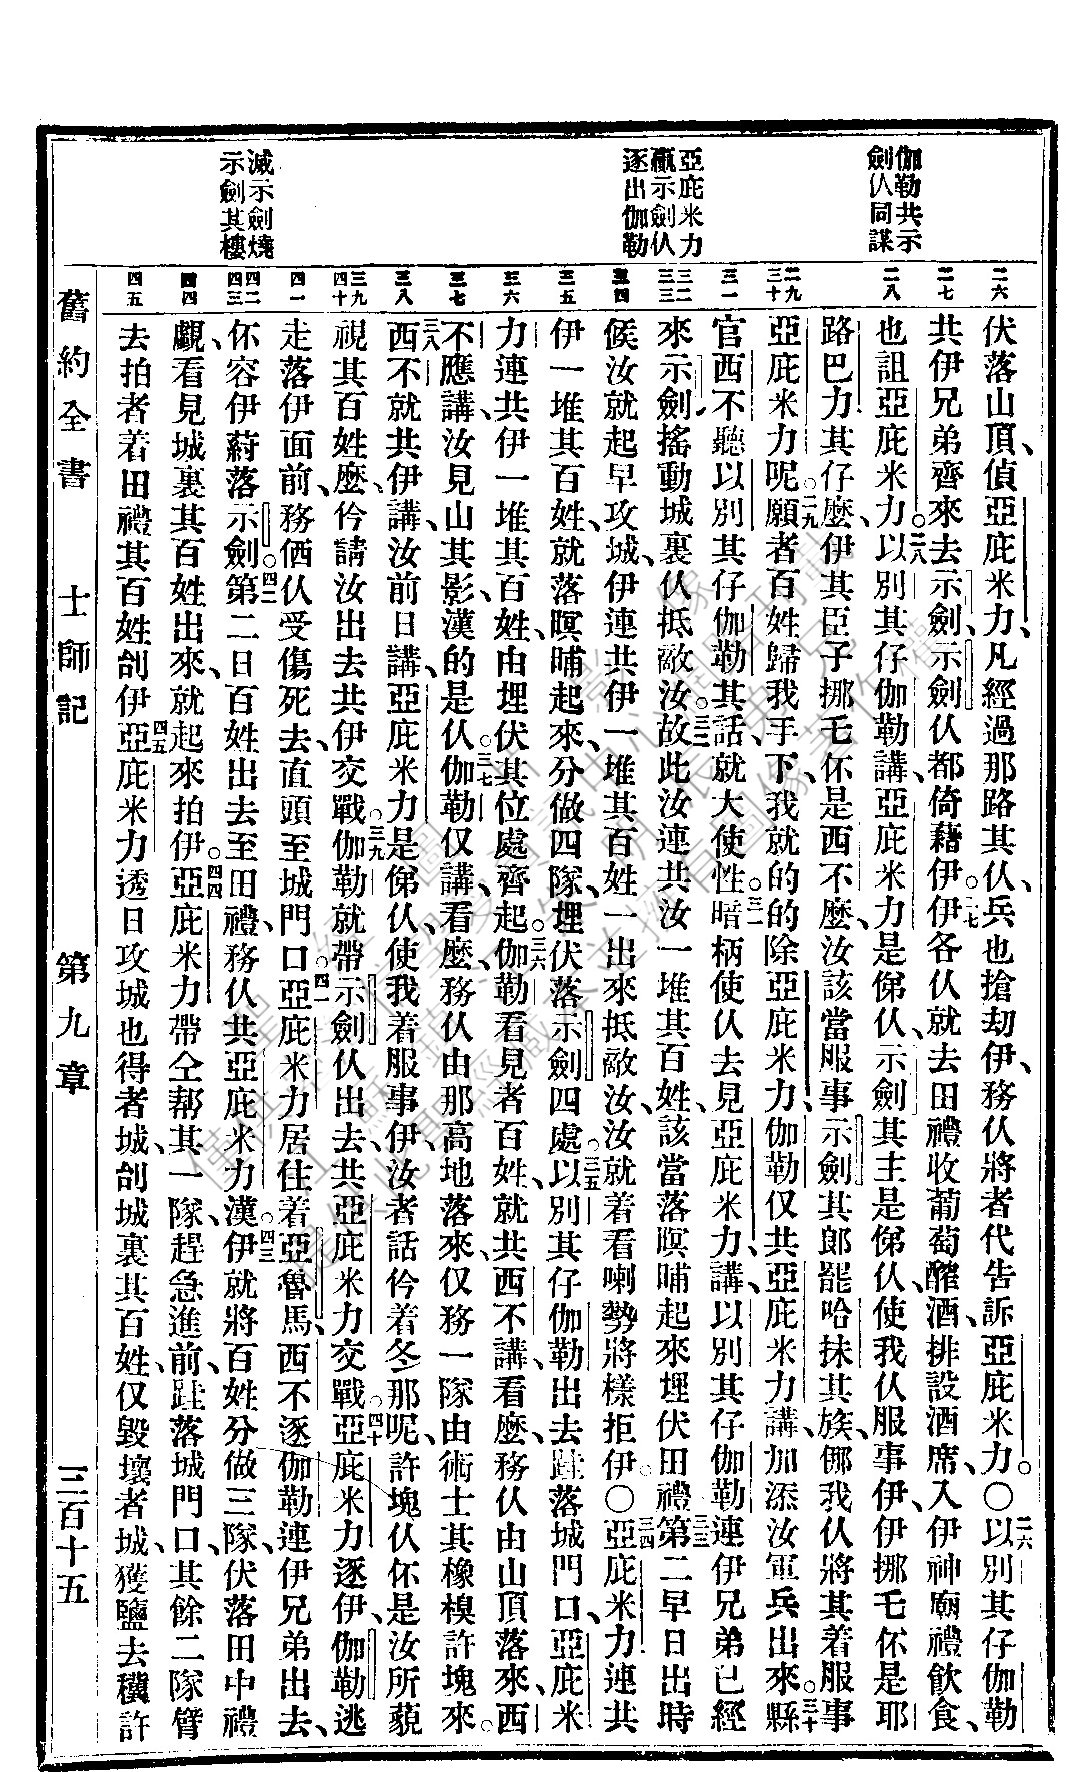 伽勒共示
劍仈同謀
亞庇米力
贏示劍仈
逐出伽勒
滅示劍燒
示劍其樓
二六
二七
二八
二九
三十
三一
三二
三三
三四
三五
三六
三七
三八
三九
四十
四一
四二
四三
四四
四五
伏落山頂、偵亞庇米力、凡經過那路其仈、兵也搶劫伊、務仈將者代告訴亞庇米力。○二六以別其仔伽勒
共伊兄弟齊來去示劍、示劍仈都倚藉伊。二七伊各仈就去田禮收葡萄、醡酒、排設酒席、入伊神廟禮飲食、
也詛亞庇米力。二八以別其仔伽勒講、亞庇米力是俤仈、示劍其主是俤仈、使我仈服事伊、伊挪乇伓是耶
路巴力其仔麽、伊其臣子挪乇伓是西不麽、汝該當服事示劍其郎罷哈抹其族、㑚我仈將其着服事
亞庇米力呢。二九願者百姓歸我手下、我就的的除亞庇米力、伽勒仅共亞庇米力講、加添汝軍兵出來。三十縣
官西不聽以別其仔伽勒其話、就大使性。三一暗柄使仈去見亞庇米力、講、以別其仔伽勒連伊兄弟已經
來示劍、搖動城裏仈抵敵汝。三二故此汝連共汝一堆其百姓、該當落暝晡起來埋伏田禮。三三第二早日出時
候、汝就起早攻城、伊連共伊一堆其百姓一出來抵敵汝、汝就着看喇勢將樣拒伊。○三四亞庇米力連共
伊一堆其百姓、就落暝晡起來、分做四隊、埋伏落示劍四處。三五以別其仔伽勒出去、跬落城門口、亞庇米
力連共伊一堆其百姓、由埋伏其位處齊起。三六伽勒看見者百姓、就共西不講、看麽、務仈由山頂落來、西
不應講、汝見山其影、漢的是仈。三七伽勒仅講、看麽、務仈由那高地落來、仅務一隊由術士其橡模許塊來。
三八西不就共伊講、汝前日講、亞庇米力是俤仈、使我着服事伊、汝者話仱着冬那呢、許塊仈伓是汝所藐
視其百姓麽、仱請汝出去共伊交戰。三九伽勒就帶示劍仈出去、共亞庇米力交戰。四十亞庇米力逐伊、伽勒逃
走落伊面前、務価仈受傷死去、直頭至城門口。四一亞庇米力居住着亞魯馬、西不逐伽勒連伊兄弟出去、
伓容伊蔚落示劍。四二第二日百姓出去至田禮、務仈共亞庇米力漢。四三伊就將百姓分做三隊、伏落田中禮、
覷看見城裏其百姓出來、就起來拍伊。四四亞庇米力帶仝帮其一隊、趕急進前、跬落城門口、其餘二隊嘗
去拍者着田禮其百姓、刣伊。四五亞庇米力透日攻城、也得者城、刣城裏其百姓、仅毀壞者城、獲鹽去穰許
舊約全書
士師記
第九章
三百十五